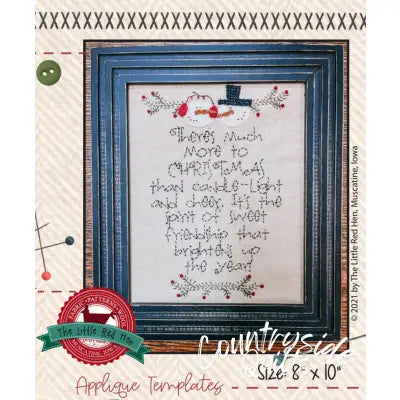 There's much
more to
CHRISTMAS
than candle-light
and cheer. It's the
spirit of sweet
friendship that
brightens up
the year!
© 2021 by The Little Red Hen, Muscatine, Iowa
FABRIC • PATTERNS • WOOL
The Little Red Hen
MUSCATINE, IOWA
Countryside
Size: 8" x 10"
Applique Templates